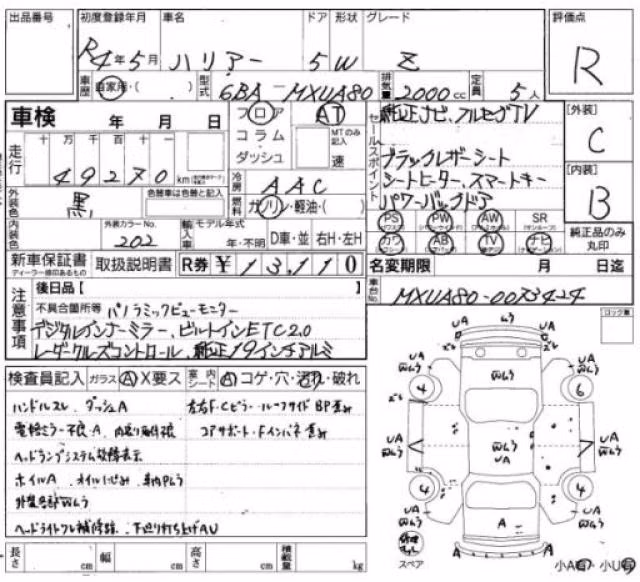 出品番号 初度登録年月 車名 ドア 形状 グレード 評価点
R4年5月 ハリアー 5 W Z R
車歴 自家用・( ) 型式 6BA-MXUA80 排気量 2000cc 定員 5人
車検 年 月 日 フロア AT
コラム MTのみ記入
ダッシュ 速
セールスポイント
純正ナビ、フルセグTV
ブラックレザーシート
シートヒーター、スマートキー
パワーバックドア
[外装] C
[内装] B
走行 十 万 千 百 十 一
49270 km
冷房 AAC
外装色 黒 色替車は色替と記入
燃料 ガソリン・軽油・( )
PS PW AW SR
カワ AB TV ナビ
純正品のみ丸印
内装色 外装カラーNo. 202 輸入車 モデル年式 年・不明 D車・並 右H・左H
新車保証書 取扱説明書 R券 ¥13,110
ディーラー捺印あるもの
名変期限 月 日迄
車台No. MXUA80-0073424
注意事項
後日品【 】
不具合箇所等 パノラミックビューモニター
デジタルインナーミラー、ビルトインETC2.0
レーダークルズコントロール、純正19インチアルミ
ロック車
検査員記入 ガラス A X要ス 室内シート A コゲ・穴・汚れ・破れ
ハンドルスレ、ダッシュA
左右F・Cピラー・ルーフサイドBP歪み
コアサポート・Fインパネ歪み
ヘッドランプシステム故障表示
ホイルA
ヘッドライトフレ補修跡、下廻り打ち上げAU
長さ cm 幅 cm 高さ cm 積載量 kg
UA ムラ UA
4 6
UA
UA
UA
4 4
A
A A
スペア
小A有・小U有